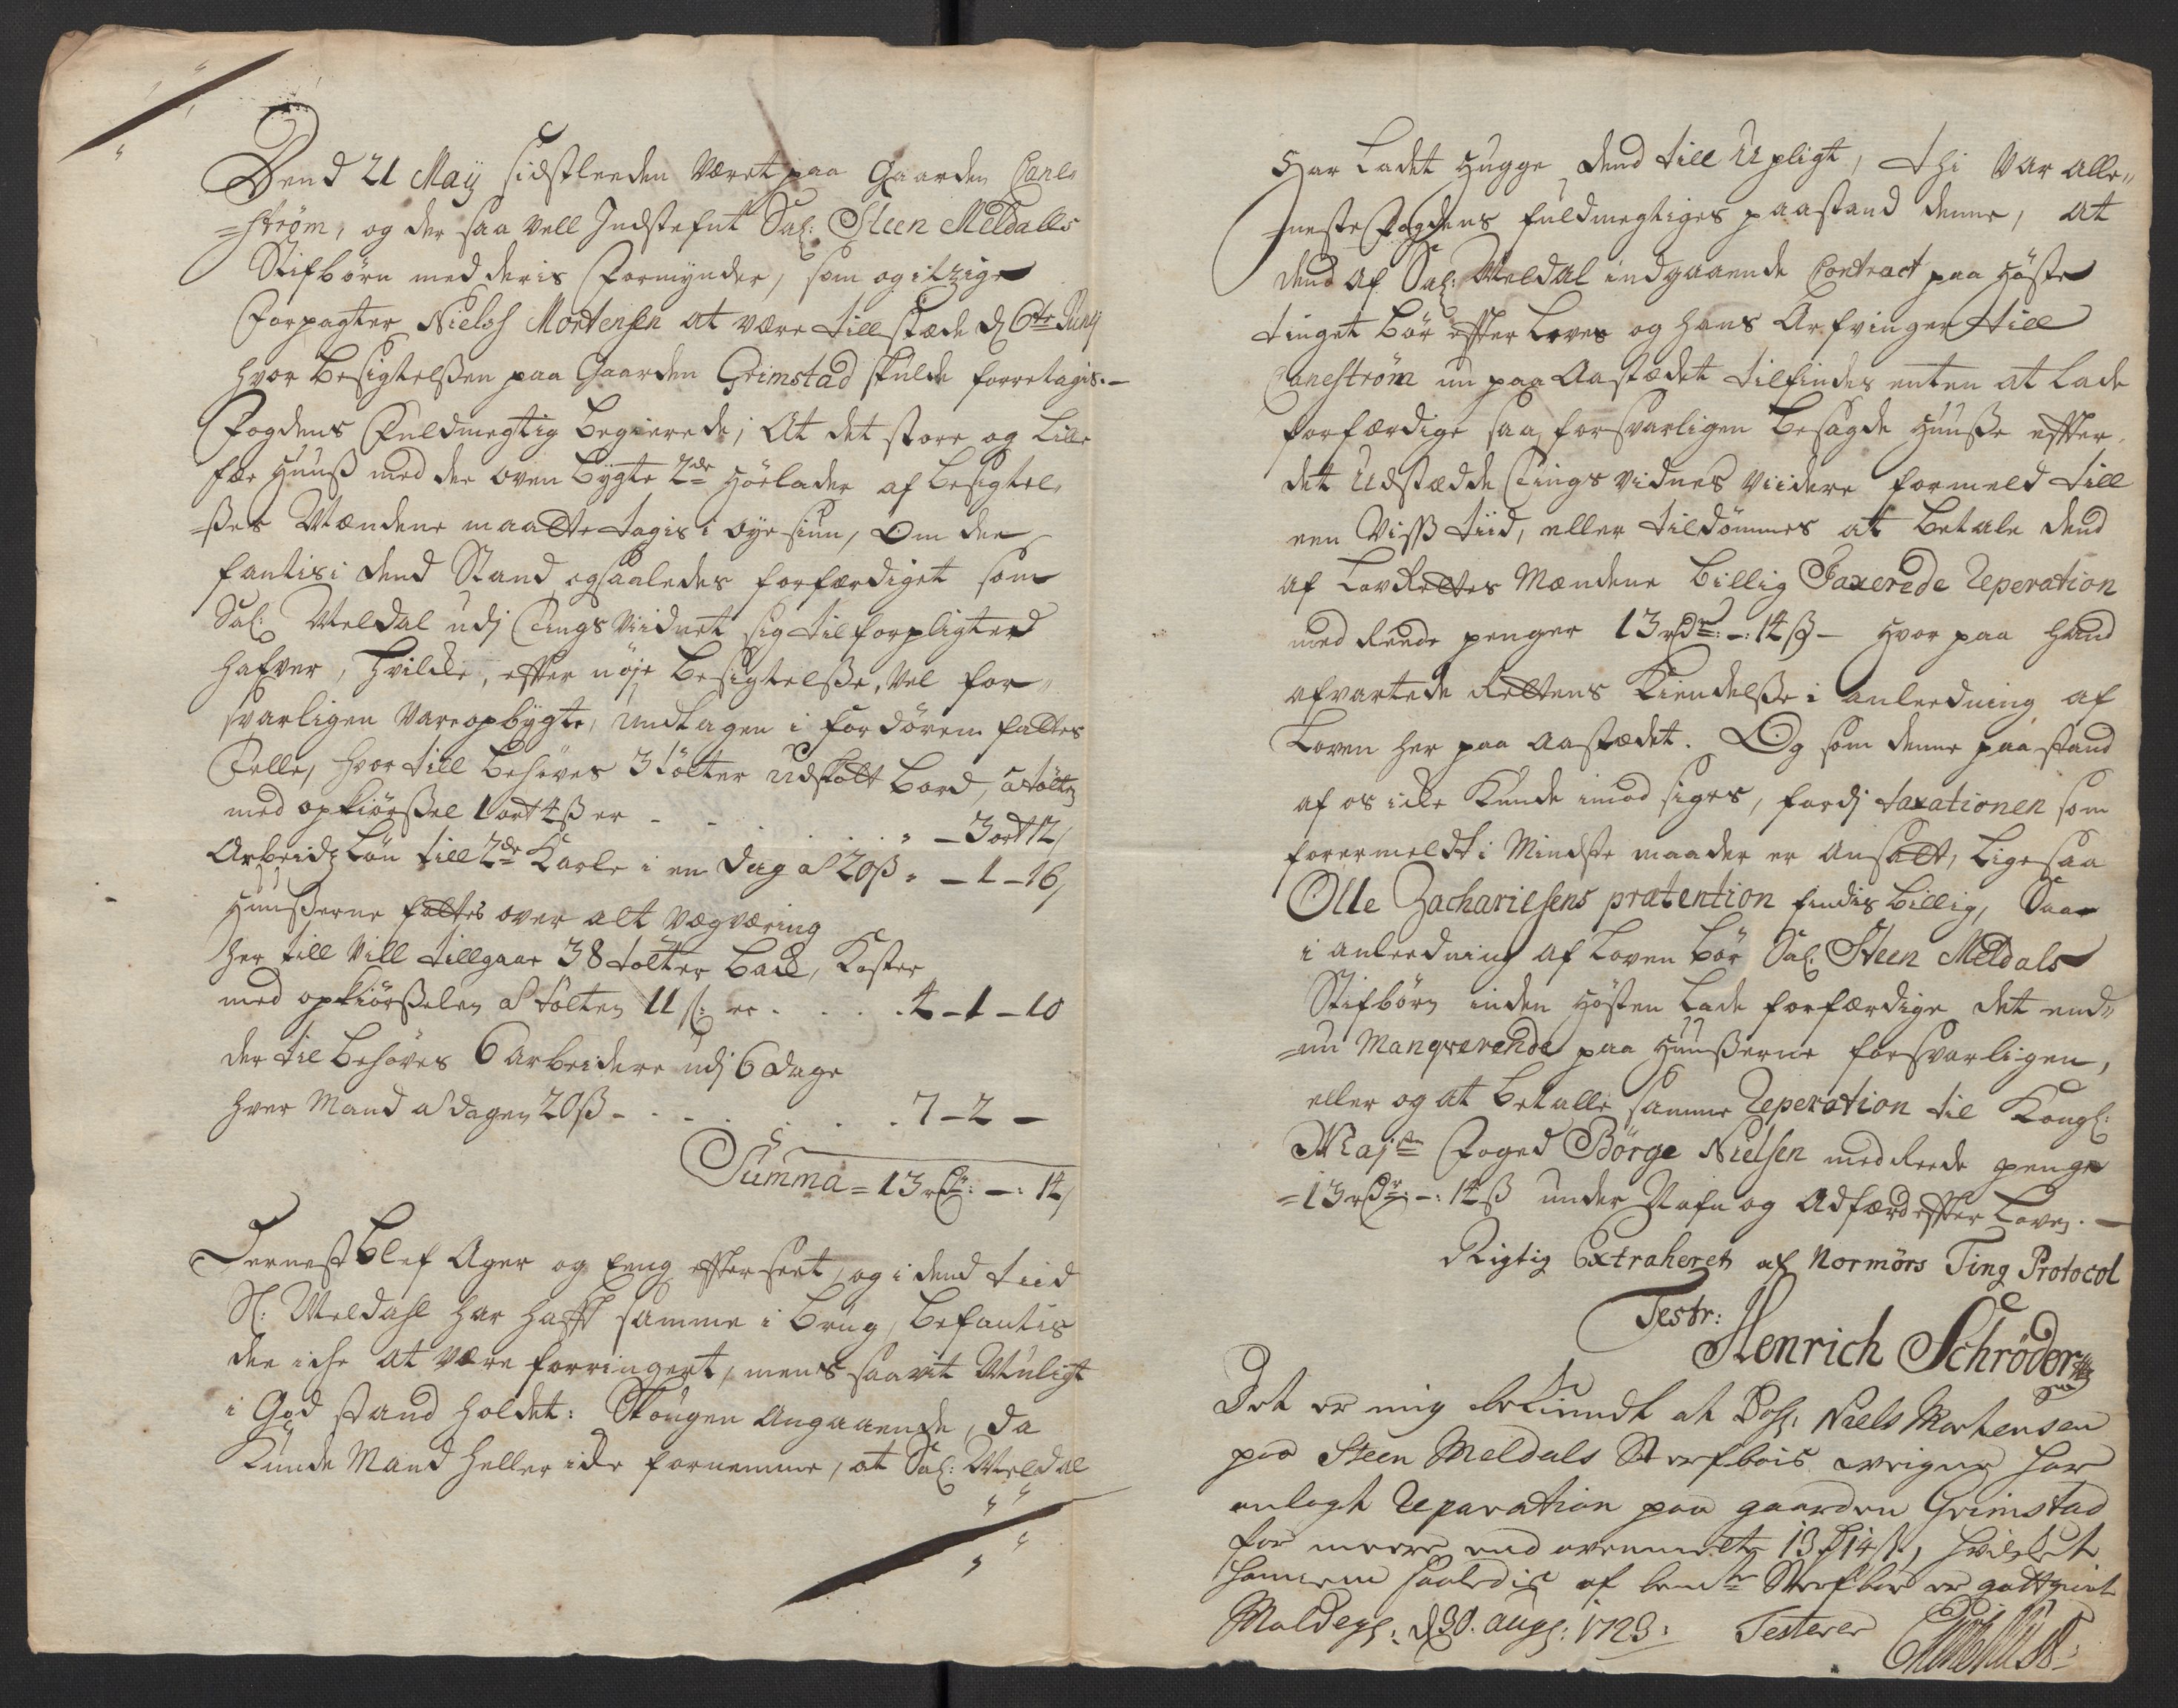 Dend 21 Maij sidstleeden været paa Gaarden Cane-
=strøm, og der saa vell Indstefnt Sal: Steen Meldalls
Stifbörn med deris Formynder, som og itzige
Forpagter Niels Mortensen at være till stæde d 6te Junij
hvor Besigtelßen paa Gaarden Grimstad skulde forretagis. –
Fogdens Fuldmegtig begierede, At det store og Lille
fæe Huuß med der oven bygte 2de Höelader af besigtel-
=ßes Mændene maatte tagis i øye siun, Om der
fantis i dend Stand ogsaaledes forfærdiget som
Sal: Meldal udj Tings Viidnet sig tilforpligted
hafver, hvilke, efter nøje besigtelße, vel for-
svarligen vare opbygte, undtagen i fordören fattes
Felle, hvor till behøves 3 tölter udskott bord, a tölten
med opkiørßel 1 ort 4 ß er - - . . . . . " – 3 ort 12/
Arbeidz Lön till 2de Karle i en dag a 20 ß " – 1 – 16/
Huußerne fattes over alt vægværing
her till vill tillgaae 38 tölter back, Koster
med opkiørßelen a tölten 11 ß: er . . . . 4 – 1 – 10
der til behøves 6 Arbeidere udj 6 dage
hver Mand a dagen 20 ß - . . . . . . 7 – 2 –
Summa = 13 rdr: – : 14/
Dernest blef Ager og Eng efterseet, og i dend tiid
Sl: Meldahl har hafft samme i brug, befantis
det iche at være forringert, mens saavit Muligt
i God stand holdet: Skougen Angaaende, da
Kunde Mand heller icke fornemme, at Sal: Meldal
Har Ladet Hugge dend till Upligt, thi var alle-
=neste Fogdens fuldmegtiges paastand denne, at
dend af Sal: Meldal indgaaende Contract paa høste
tinget bör effter Loven og hans Arfvinger till
Canestrøm nu paa Aastædet tilfindes enten at lade
forfærdige saa forsvarligen besagde Huuße effter
det Udstædde Tings vidnes viidere formeld till
een Viß tiid, eller tildömmes at betale dend
af LavRettes Mændene billig Taxerede Reperation
med Reede penger 13 rdr: – : 14 ß – hvor paa hand
afvartede Rettens Kiendelße i anleedning af
Loven her paa Aastædet. Og som denne paastand
af os icke Kunde imod siges, fordj taxationen som
forermeldt i Mindste maader er ansatt, ligesaa
Olle Zachariesens prætention findis billig, Saa
i anleedning af Loven bör Sal: Steen Meldals
Stifbörn inden Høsten lade forfærdige det end-
=nu Manqverende paa Huußerne forsvarligen,
eller og at betalle samme Reperation til Kongl:
Maj:ts Foged Börge Nielsen med Reede penge
=13 rdr: – : 14 ß under Nafn og Adfærd effter Loven. –
Rigtig Extraheret af Normörs Ting Protocol
Testr:
Henrich Schröder
Det er mig bekiendt at Niels Mortensen
paa Steen Meldals Sterfbois veigne har
anlagt Reparation paa gaarden Grimstad
for meere end ovenmeldte 13 rd 14 ß, hvilket
hannem saaledis af bemte Sterfboe er godtgiort
Moldegs: d 30. augs: 1723. Testerer